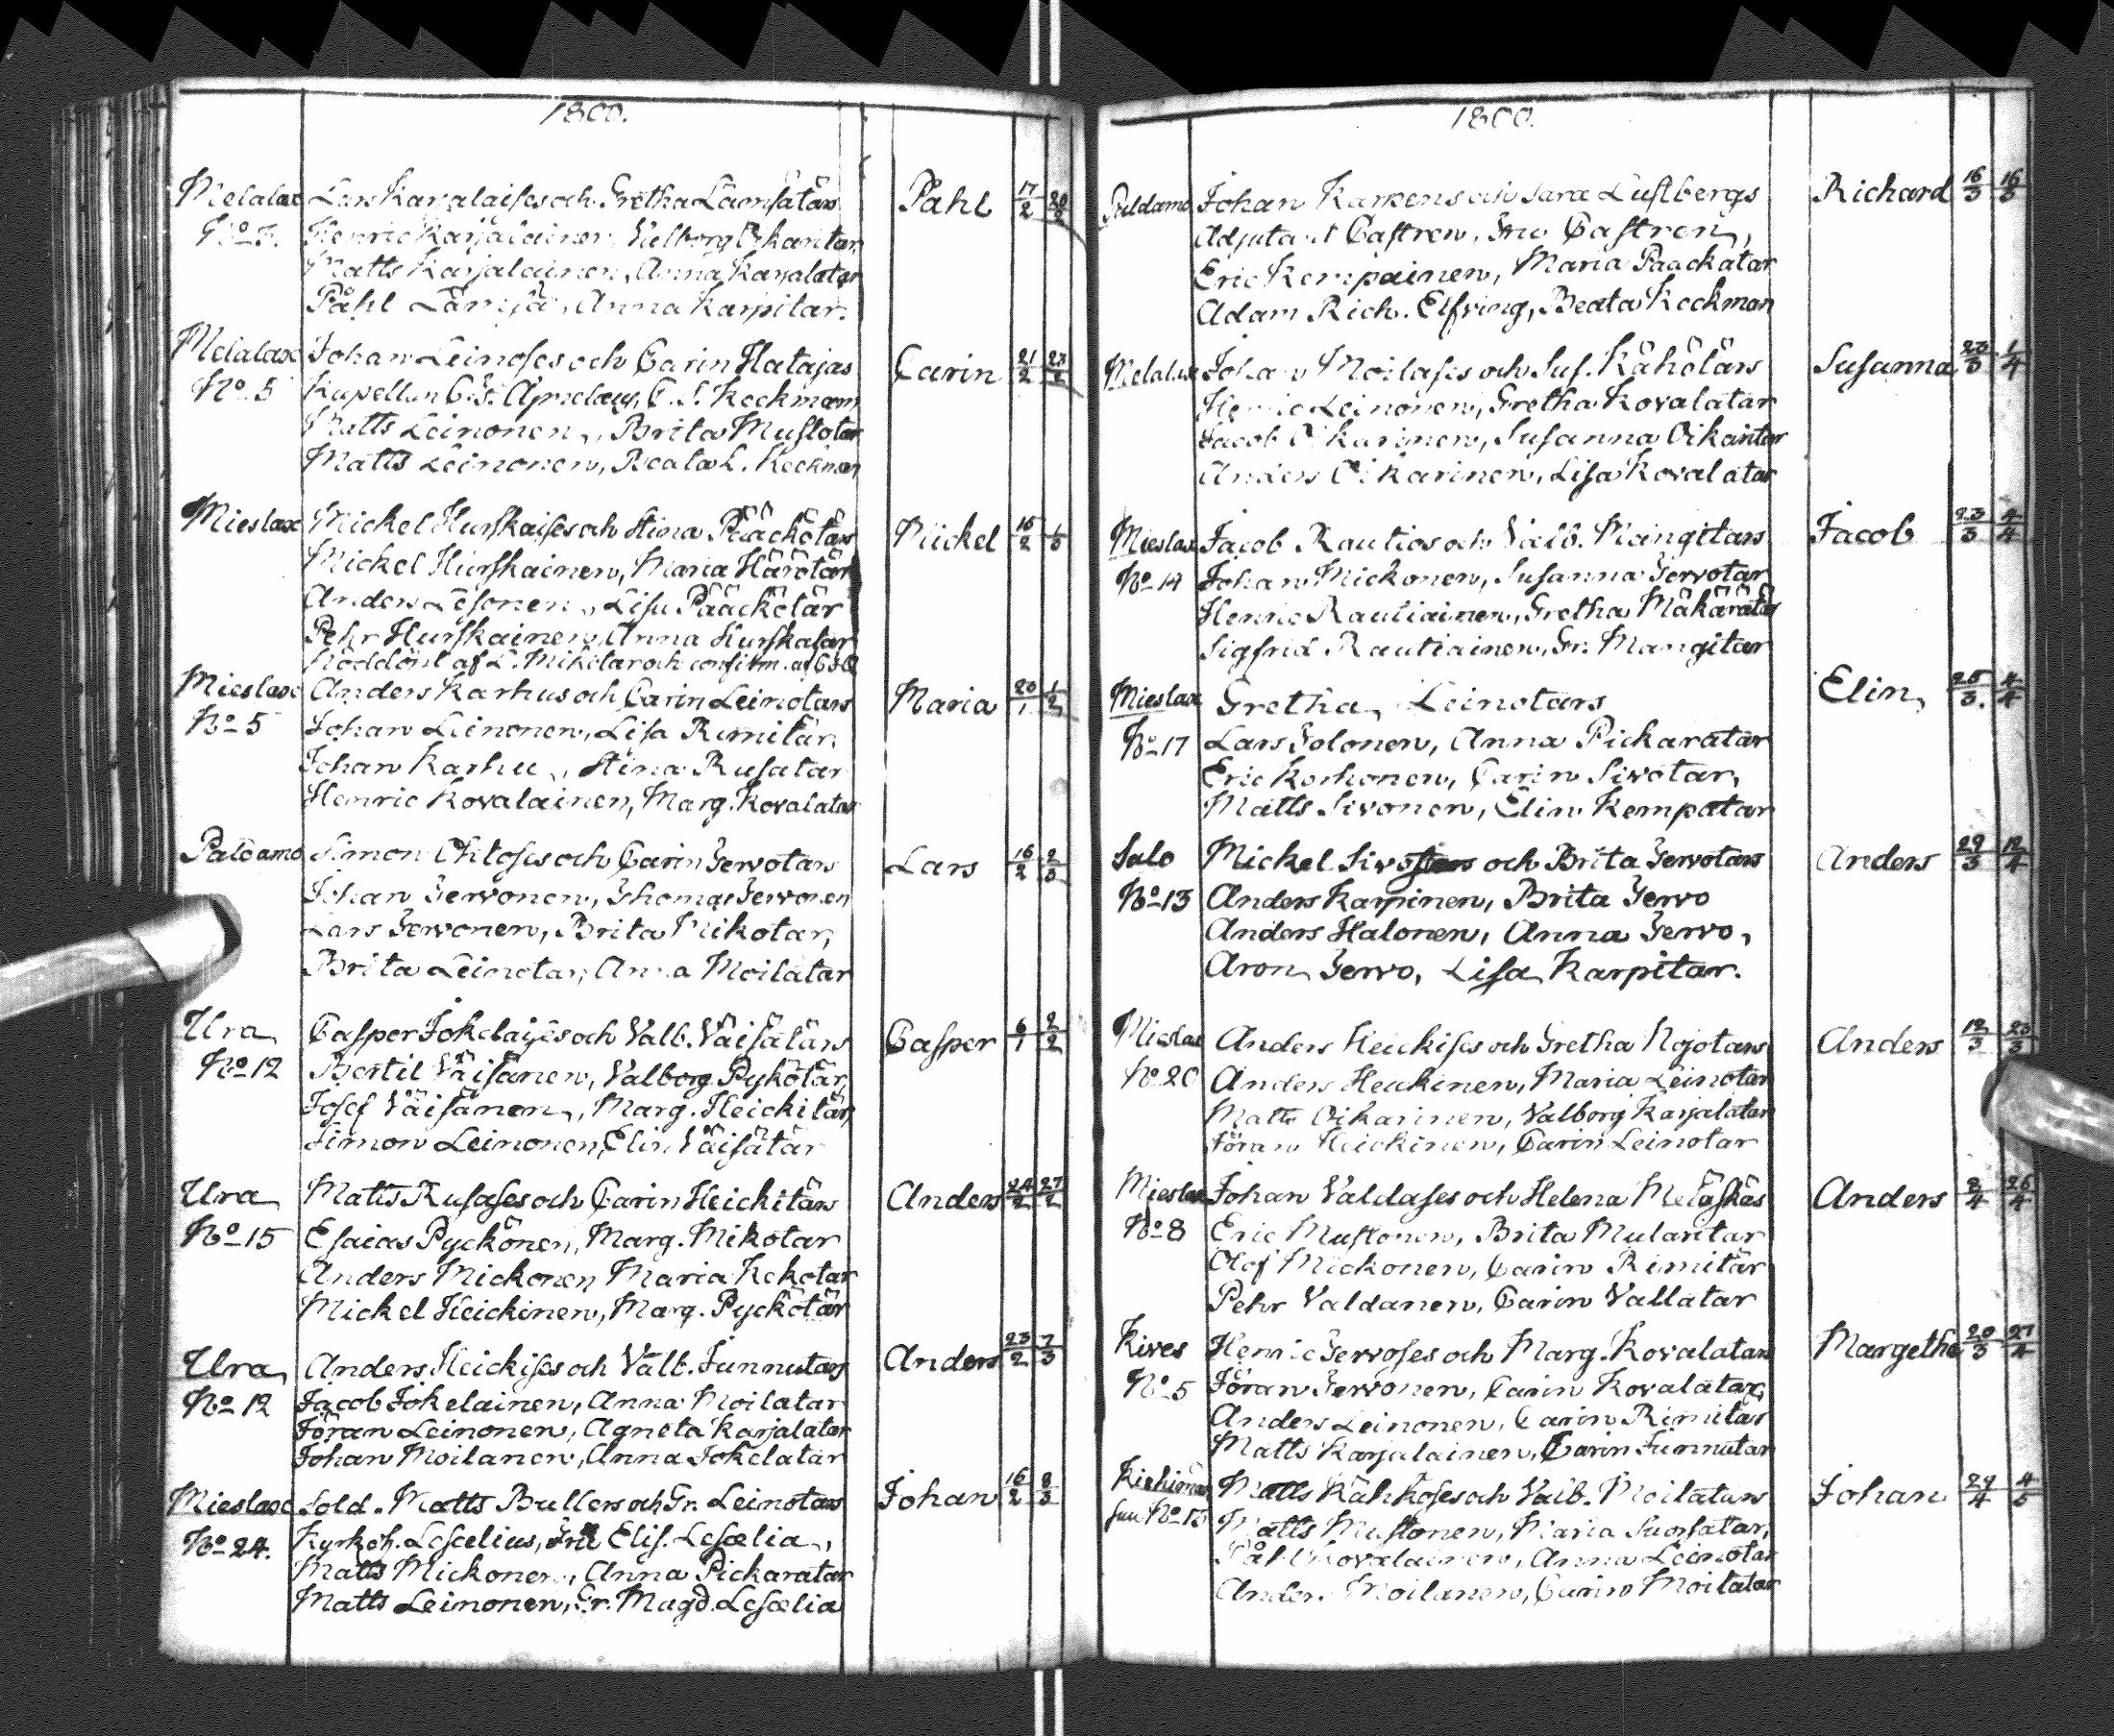 1800.
Melalax Lars Karjalaises och Gretha Lämsätärs Påhl 17/2 20/2
No 3. Henric Karjalainen, Valborg Oikaritar,
Matts Karjalainen, Anna Karjalatar
Påhl Lämsä, Anna Karpitar.
Melalax Johan Leinoses och Carin Hatajas Carin 21/2 23/2
No 5 Kapellan C. S. Apnelaus, C. S. Keckman,
Matts Leinonen, Brita Mustotar
Matts Leinonen, Beata L. Keckman
Mieslax Mickel Hurskaises och Stina Pääckötärs Mickel 15/2 1/3
Mickel Hurskainen, Maria Härötär
Anders Lesonen, Lisa Pääckötär
Pehr Hurskainen, Anna Hurskatar
Nöddöpt af L. Mikitar och confirm. af
Mieslax Anders Karhus och Carin Leinotars Maria 20/1 1/2
No 5 Johan Leinonen, Lisa Rimitär,
Johan Karhu, Stina Rusatar
Henric Kovalainen, Marg. Kovalatar
Paldamo Simon Ohtoses och Carin Jervotars Lars 16/2 2/3
Johan Jervonen, Thomas Jervonen
Lars Jervonen, Brita Mikotar,
Brita Leinotar, Anna Moilatar
Ura Casper Jokelaises och Valb. Väisätärs Casper 6/1 2/2
No 12 Bertil Väisänen, Valborg Pykötär,
Josef Väisänen, Marg. Heickitär,
Simon Leinonen, Elin Väisätär
Ura Matts Rusases och Carin Heickitärs Anders 24/2 27/2
No 15 Esaias Pyckönen, Marg. Mikotar
Anders Mickonen, Maria Kekotar
Mickel Heickinen, Marg. Pyckötär
Ura Anders Heickises och Valb. Junnutars Anders 23/2 7/3
No 12 Jacob Jokelainen, Anna Moilatar
Jöran Leinonen, Agneta Karjalatar
Johan Moilanen, Anna Jokelatar
Mieslax Sold. Matts Bullers och Gr. Leinotars Johan 16/2 8/3
No 24. Kyrkoh. Lesælius, Elis. Lesælia,
Matts Mickonen, Anna Pickaratar
Matts Leinonen, Gr. Magd. Lesælia
1800.
Paldamo Johan Karpens och Sara Lustbergs Richard 16/3 16/3
Adjutant Castren, Fru Castren,
Eric Kempainen, Maria Paackatar
Adam Rich. Elfving, Beata Keckman
Melalax Johan Moilases och Sus. Kähötärs Susanna 23/3 1/4
Henric Leinonen, Gretha Kovalatar
Jacob Oikarinen, Susanna Oikaritar
Anders Oikarinen, Lisa Kovalatar
Mieslax Jacob Rautios och Valb. Mangitars Jacob 23/3 4/4
No 14 Johan Mickonen, Susanna Jervotar
Henric Rautiainen, Gretha Mäkärätär
Sigfrid Rautiainen, Gr. Mangitar
Mieslax Gretha Leinotars Elin 25/3. 4/4
No 17 Lars Tolonen, Anna Pickaratar
Eric Korhonen, Carin Sivotar,
Matts Sivonen, Elin Kempatar
Salo Mickel och Brita Jervotars Anders 29/3 12/4
No 13 Anders Karpinen, Brita Jervo
Anders Halonen, Anna Jervo,
Aron Jervo, Lisa Karpitar.
Mieslax Anders Heickises och Gretha Nojotars Anders 12/3 23/3
No 20 Anders Heickinen, Maria Leinotar
Matts Oikarinen, Valborg Karjalatar
Jöran Heickinen, Carin Leinotar
Mieslax Johan Valdases och Helena Anders 2/4 26/4
No 8 Eric Mustonen, Brita Mularitar
Olof Mickonen, Carin Rimitär
Pehr Valdanen, Carin Vallatar
Kives Henric Jervoses och Marg. Kovalatars Margetha 20/3 27/4
No 5 Jöran Jervonen, Carin Kovalatar,
Anders Leinonen, Carin Rimitar
Matts Karjalainen, Carin Junnutar
Matts Kähköses och Valb. Moilatars Johan 24/4 4/5
No 13 Matts Mustonen, Maria Suorsatar,
Påhl Kovalainen, Anna Leinotar
Anders Moilanen, Carin Moilatar